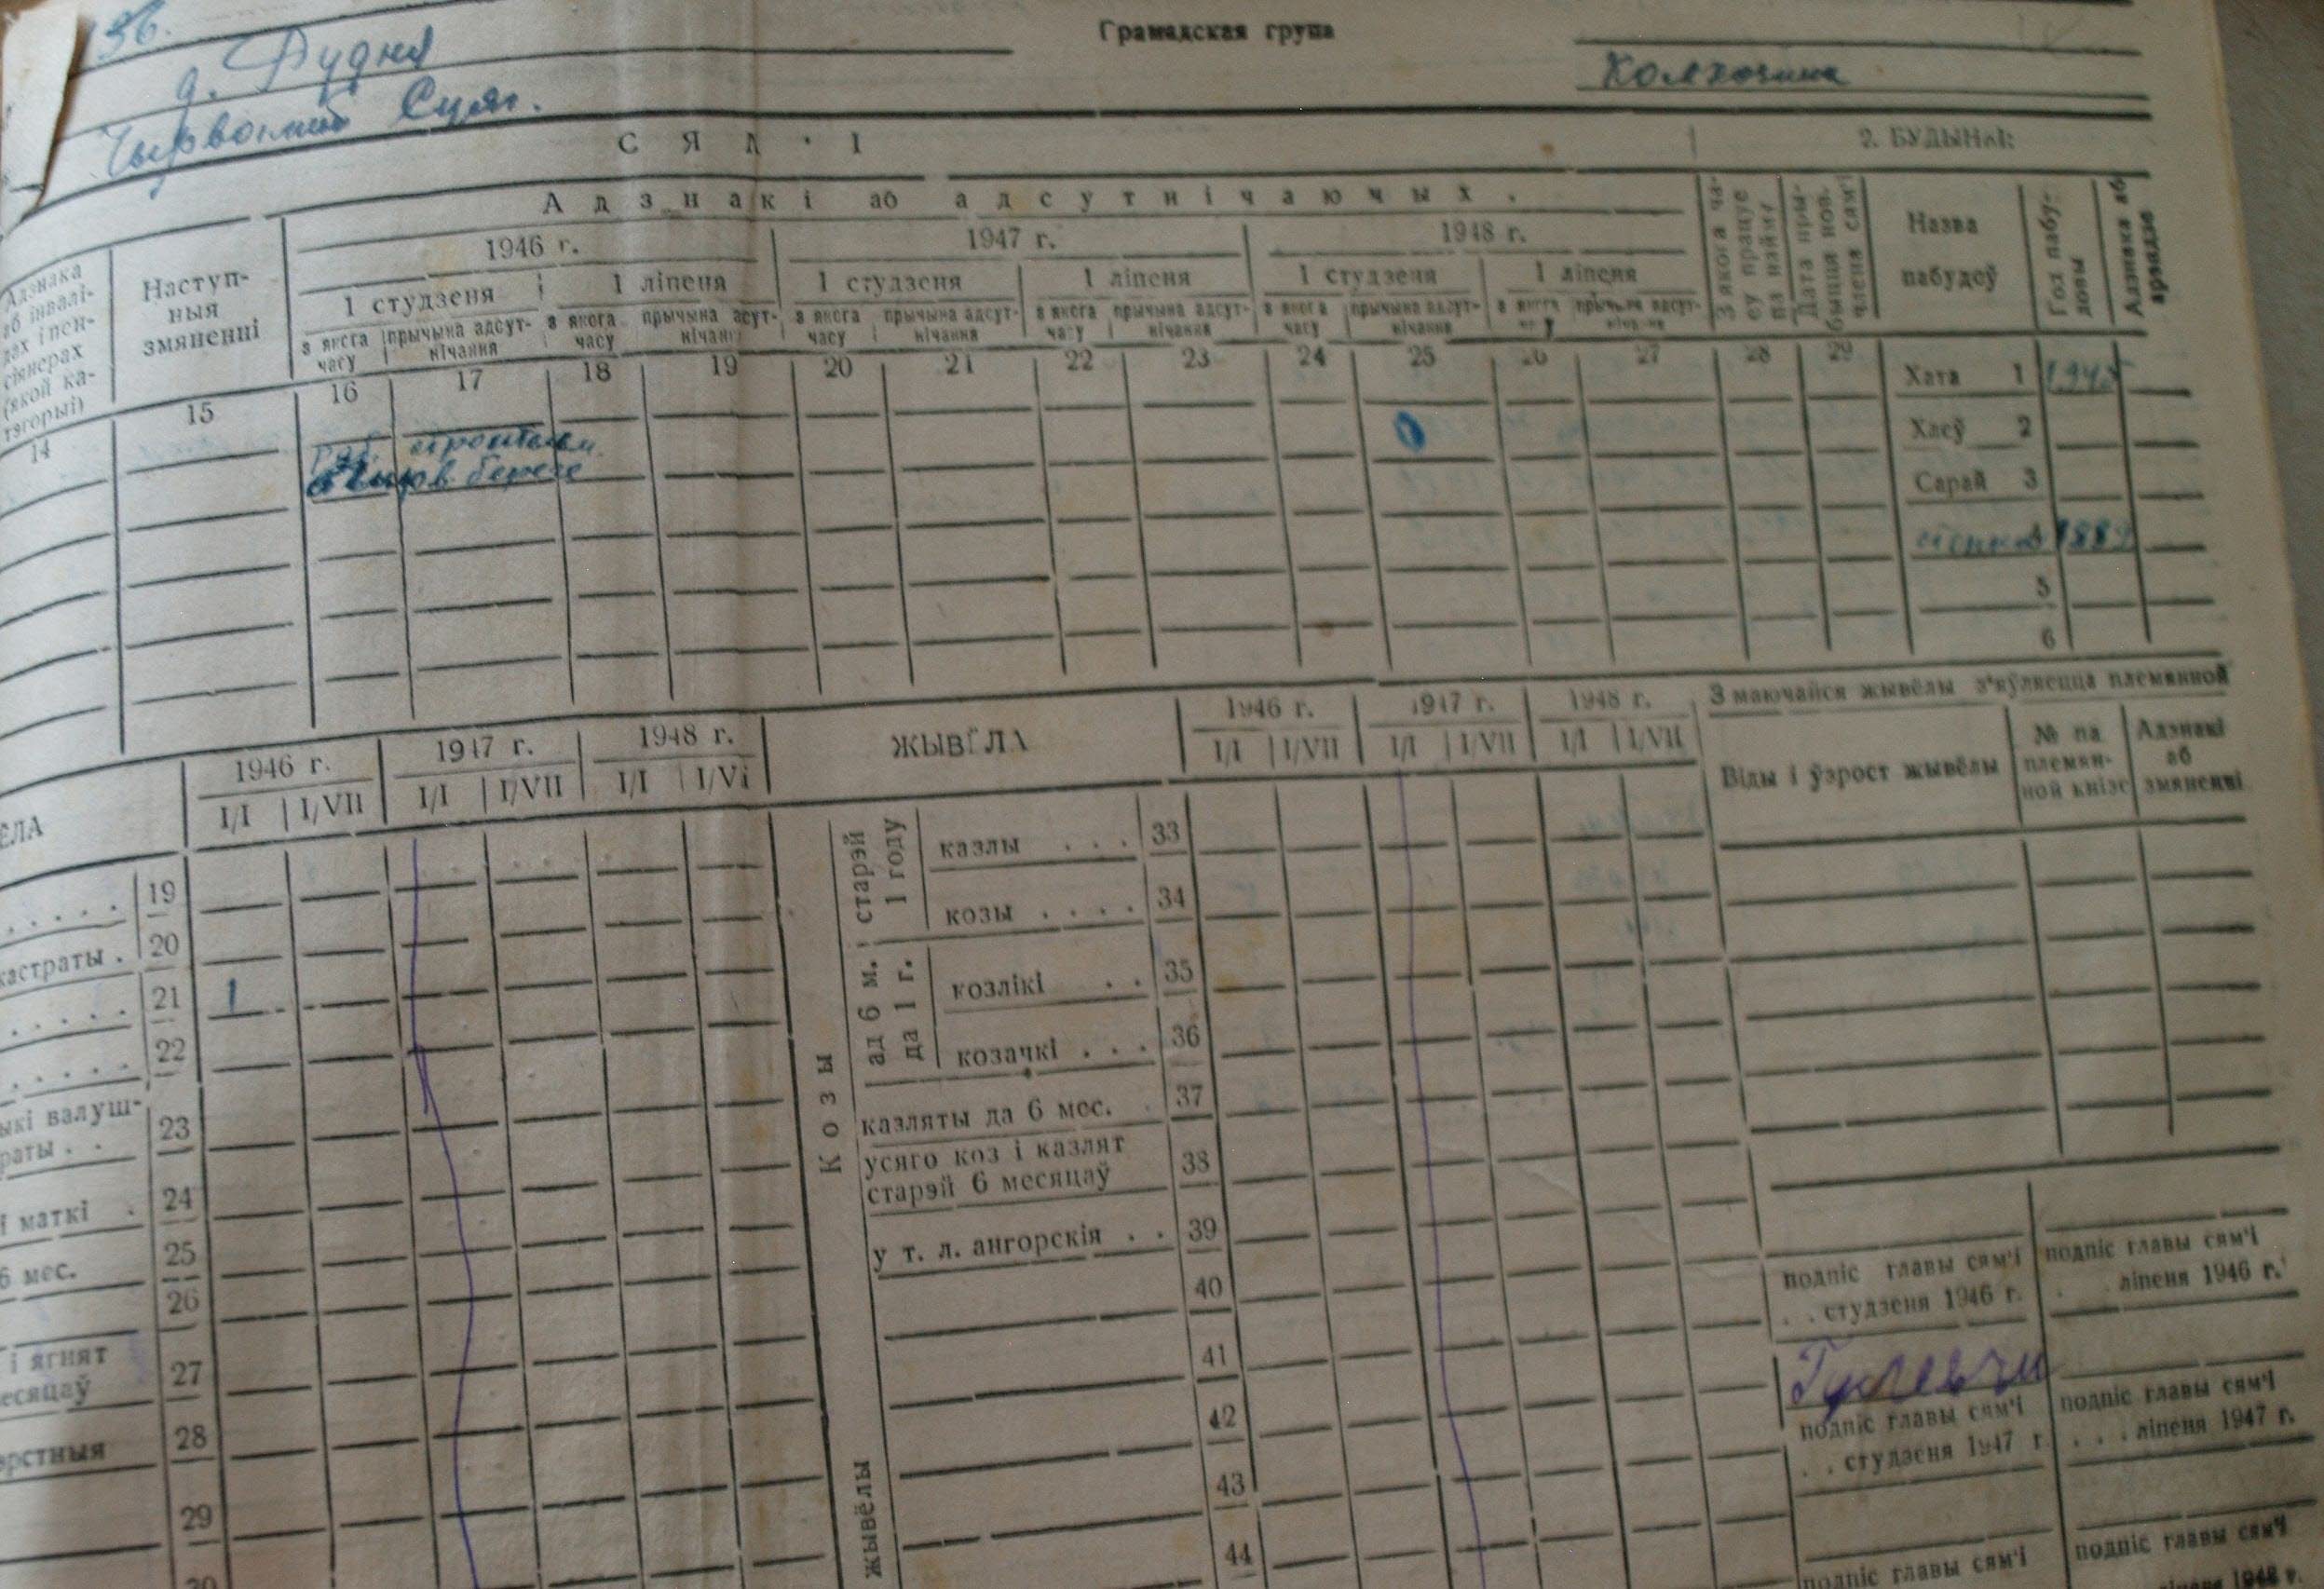 136.
д. Рудня
Чырвоный Сцяг.
Грамадская група
Колхозника
СЯМ'І
2. БУДЫНКІ:
Адзнакі аб адсутнічаючых.
Адзнака аб інвалідах і пенсіянерах (якой катэгорыі)
Наступныя змяненні
1946 г.
1947 г.
1948 г.
1 студзеня
1 ліпеня
1 студзеня
1 ліпеня
1 студзеня
1 ліпеня
з якога часу
прычына адсутнічання
з якога часу
прычына адсутнічання
з якога часу
прычына адсутнічання
з якога часу
прычына адсутнічання
з якога часу
прычына адсутнічання
з якога часу
прычына адсутнічання
Дата прыбыцця нов. члена сям'і
Назва пабудоў
Год пабудовы
Адзнака аб арэндзе
14 15 16 17 18 19 20 21 22 23 24 25 26 27 28 29
Хата 1 1945
Хлеў 2
Сарай 3
1889
5
6
в береге
ЁЛА
1946 г.
1947 г.
1948 г.
I/I I/VII I/I I/VII I/I I/VI
ЖЫВЁЛА
1946 г.
1947 г.
1948 г.
I/I I/VII I/I I/VII I/I I/VII
З маючайся жывёлы з'яўляецца племянной
Віды і ўзрост жывёлы
№ па племянной кнізе
Адзнакі аб змяненні
. . . . . 19
кастраты . 20
. . . . . 21 1
. . . . . 22
ыкі валуш-
раты . . 23
і маткі . 24
6 мес. 25
26
і ягнят
есяцаў 27
эрстныя 28
29
30
Козы
старэй 1 году
казлы . . . 33
козы . . . . 34
ад 6 м. да 1 г.
козлікі . . 35
козачкі . . . 36
казляты да 6 мес. . 37
усяго коз і казлят
старэй 6 месяцаў 38
у т. л. ангорскія . . 39
40
41
42
43
44
жывёлы
подпіс главы сям'і
. . студзеня 1946 г.
подпіс главы сям'і
. . ліпеня 1946 г.
подпіс главы сям'і
. . студзеня 1947 г.
подпіс главы сям'і
. . . ліпеня 1947 г.
подпіс главы сям'і
подпіс главы сям'і
ліпеня 1948 г.